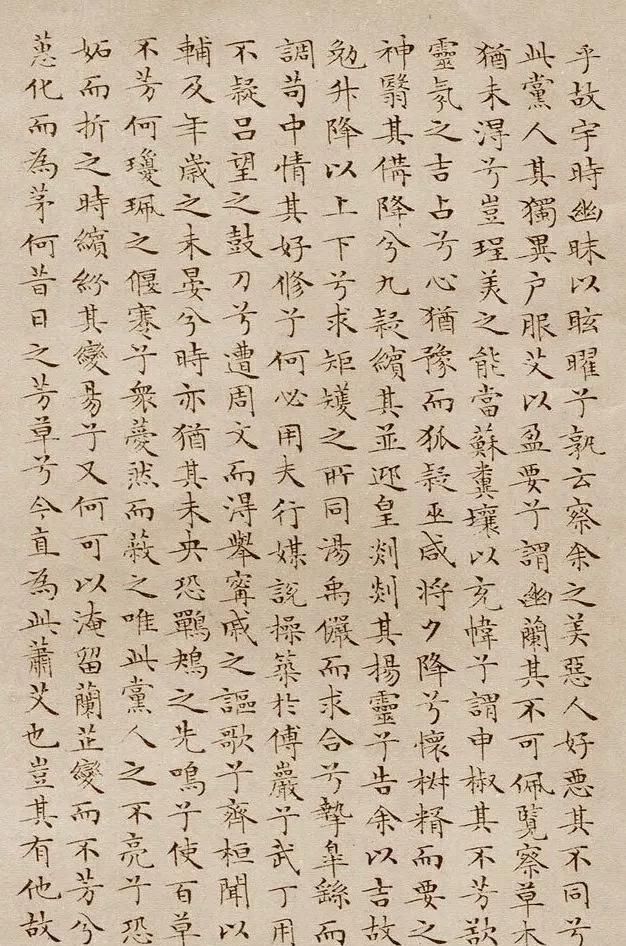 乎故宇時幽昧以眩曜兮孰云察余之美惡人好惡其不同兮
此黨人其獨異户服艾以盈要兮謂幽蘭其不可佩覽察草木
猶未淂兮豈珵美之能當蘇糞壤以充幃兮謂申椒其不芳欲
靈氛之吉占兮心猶豫而狐疑巫咸将夕降兮懷椒糈而要之
神翳其僃降兮九疑繽其並迎皇剡剡其揚靈兮告余以吉故
勉升降以上下兮求矩矱之所同湯禹儼而求合兮摯皐繇而
調苟中情其好修兮何必用夫行媒說操築於傅巖兮武丁用
不疑吕望之鼓刀兮遭周文而淂舉甯戚之謳歌兮齊桓聞以
輔及年歲之未晏兮時亦猶其未央恐鶗鴂之先鳴兮使百草
不芳何瓊珮之偃蹇兮衆薆然而蔽之唯此黨人之不亮兮恐
妬而折之時繽紛其變易兮又何可以淹留蘭芷變而不芳兮
蕙化而為茅何昔日之芳草兮今直為此蕭艾也豈其有他故